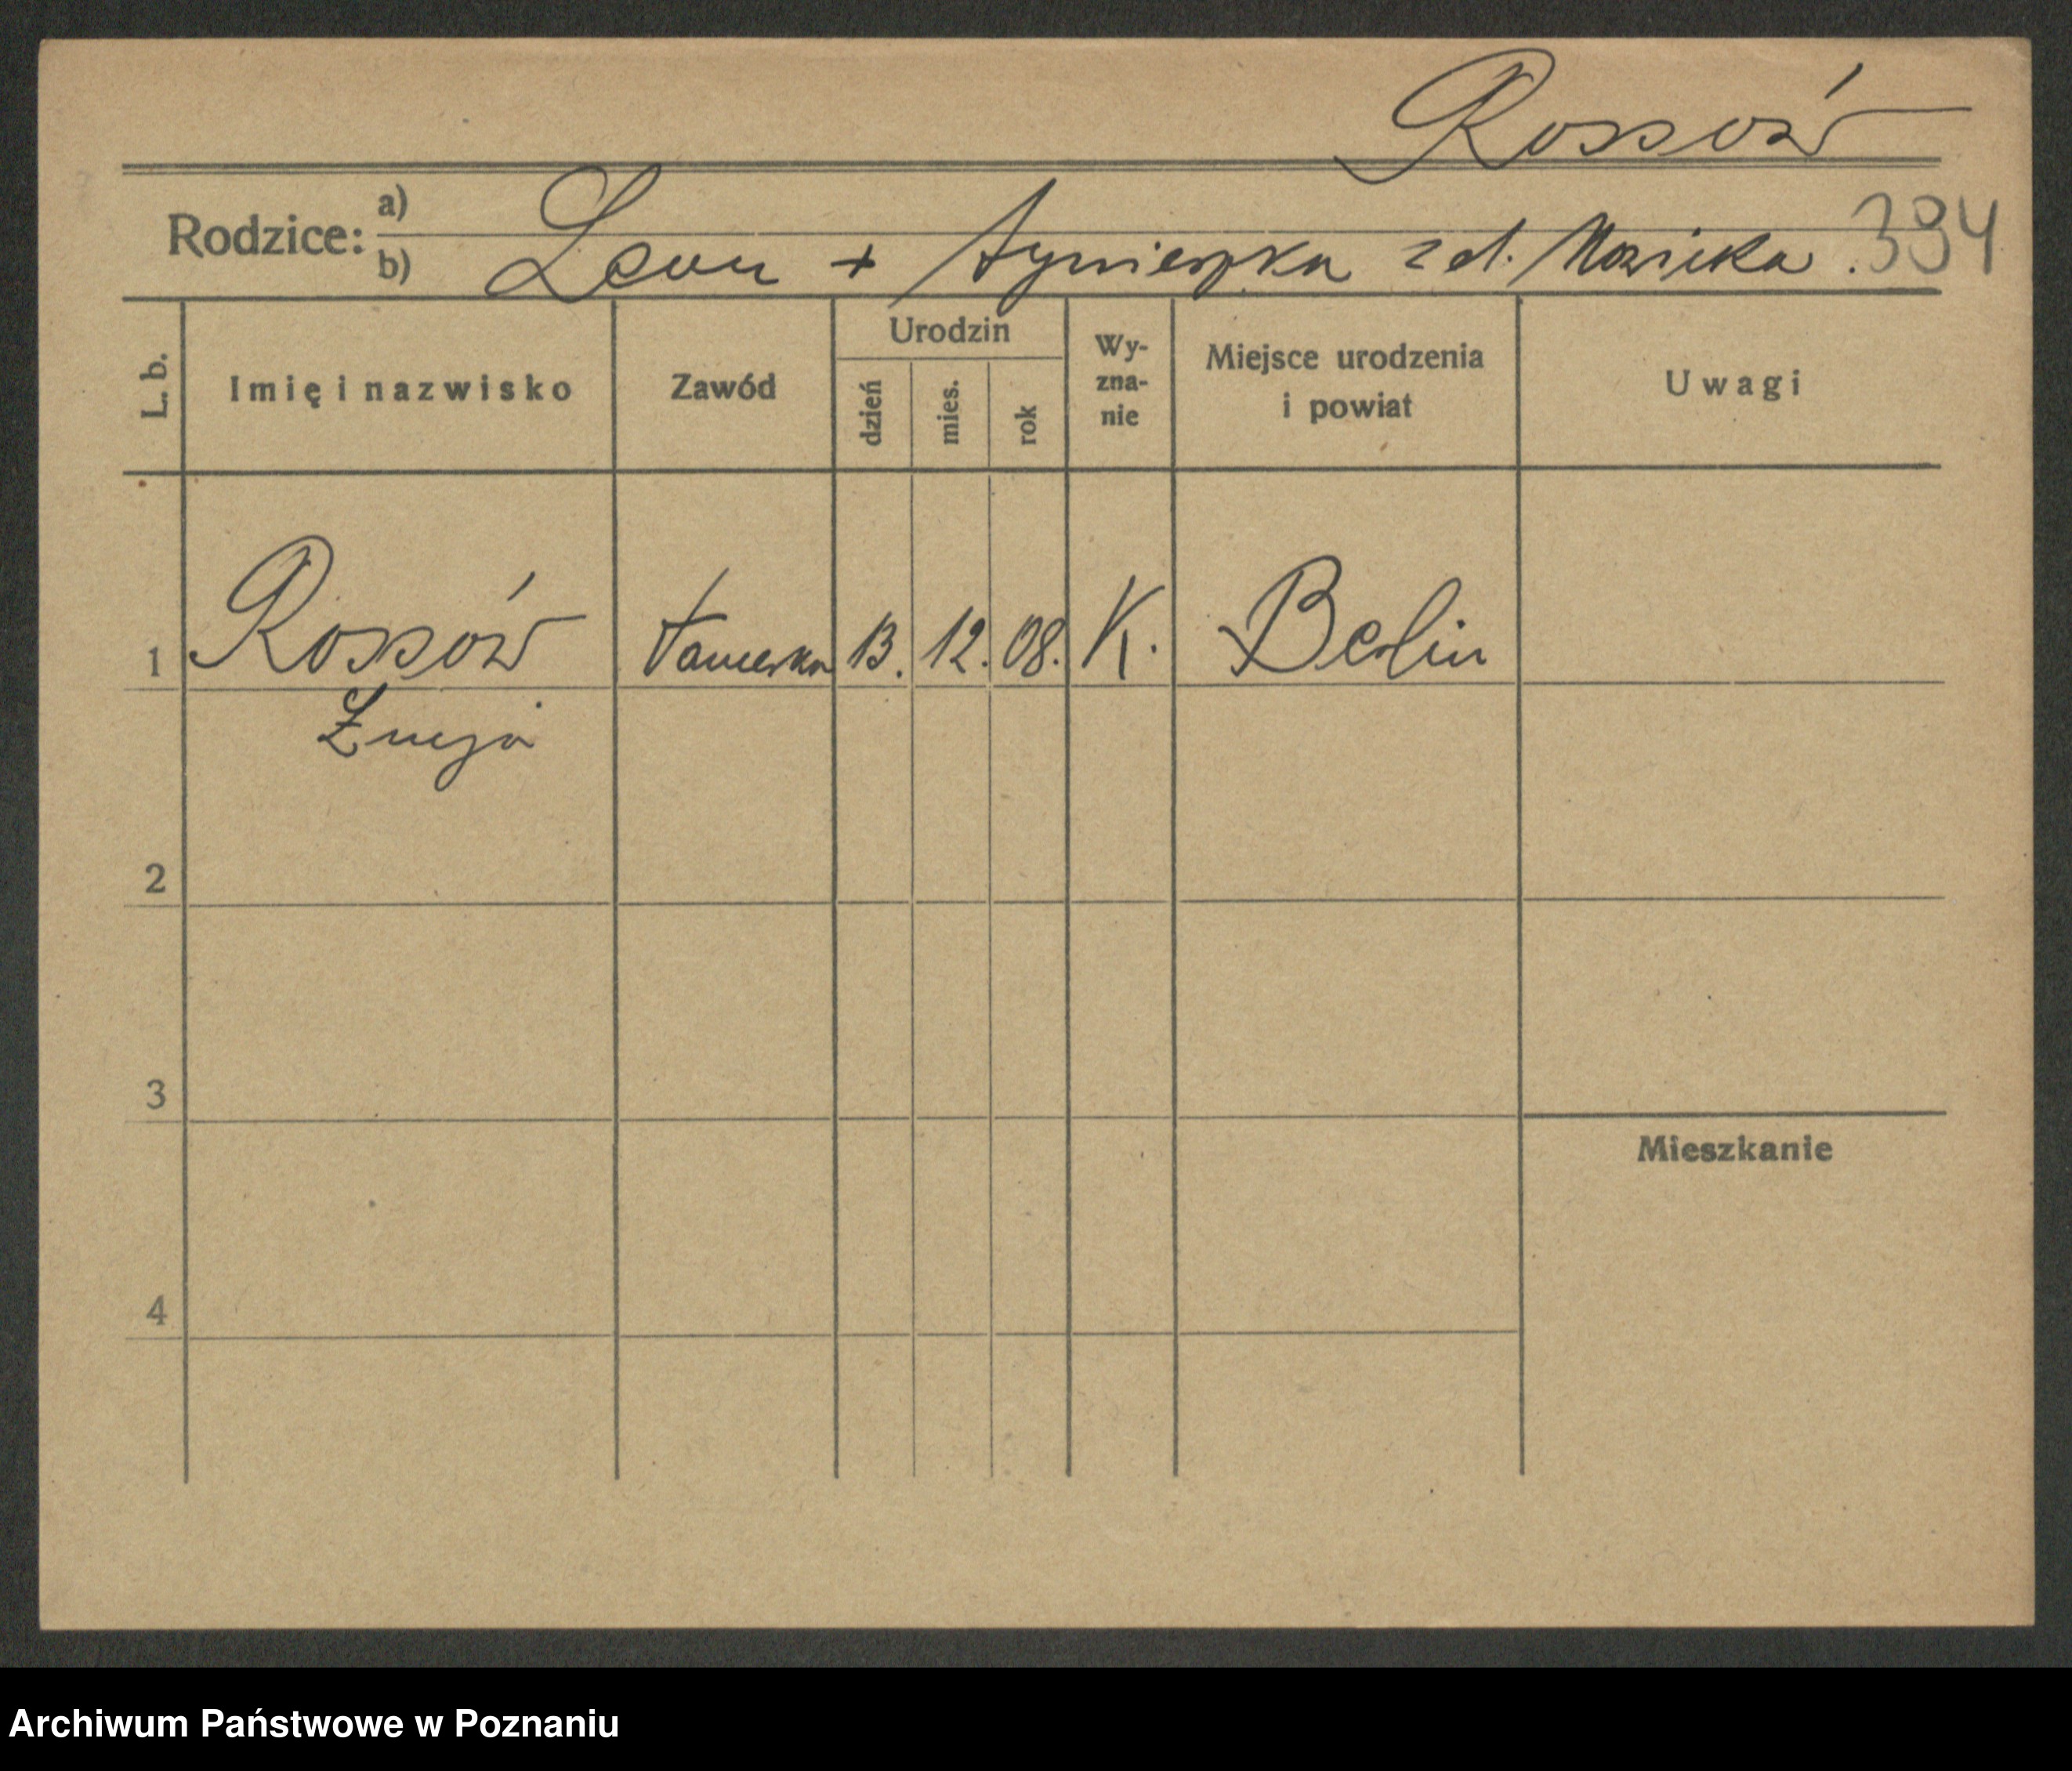 Rossów
Rodzice: a)
b) Leon + Agnieszka z d. Nowicka. 394
L. b.
Imię i nazwisko
Zawód
Urodzin
dzień
mies.
rok
Wy-
zna-
nie
Miejsce urodzenia
i powiat
Uwagi
1 Rossów Tancerka 13. 12. 08. K. Berlin
Łucja
2
3
Mieszkanie
4
Archiwum Państwowe w Poznaniu